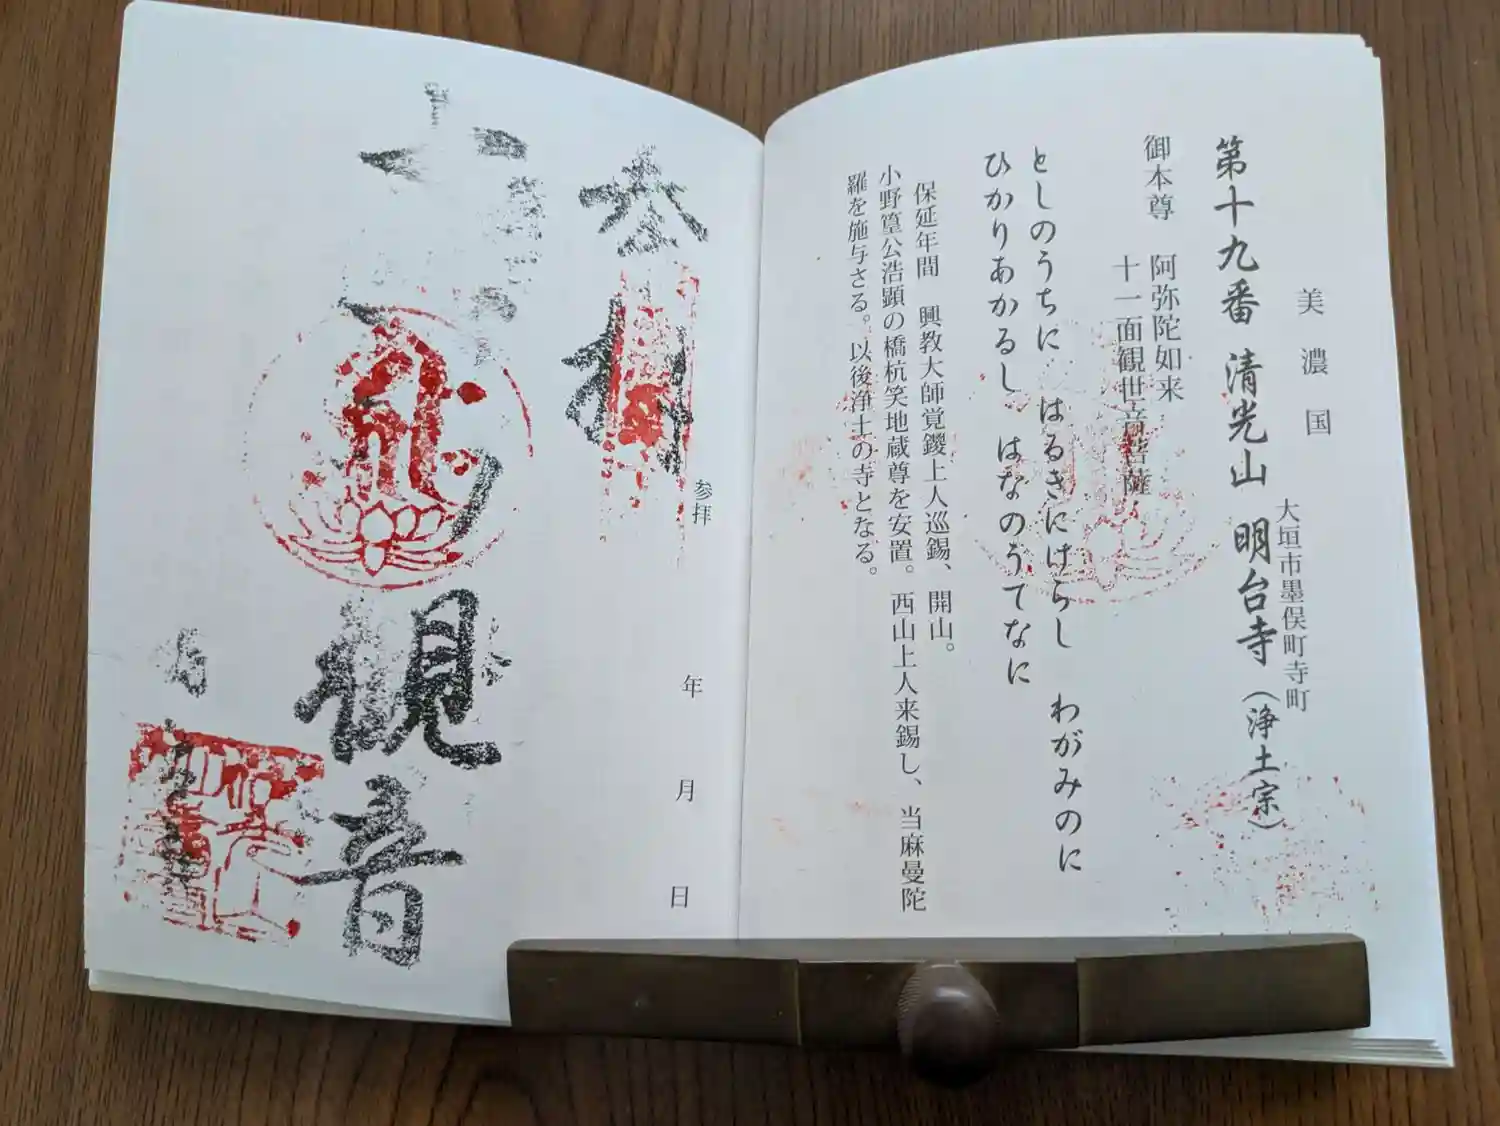 美濃国
大垣市墨俣町寺町
第十九番 清光山 明台寺（浄土宗）
御本尊 阿弥陀如来
十一面観世音菩薩
としのうちに はるきにけらし わがみのに
ひかりあかるし はなのうてなに
保延年間 興教大師覚鑁上人巡錫、開山。
小野篁公浩顕の橋杭笑地蔵尊を安置。西山上人来錫し、当麻曼陀
羅を施与さる。以後浄土の寺となる。
参拝 年 月 日
奉拝
観音